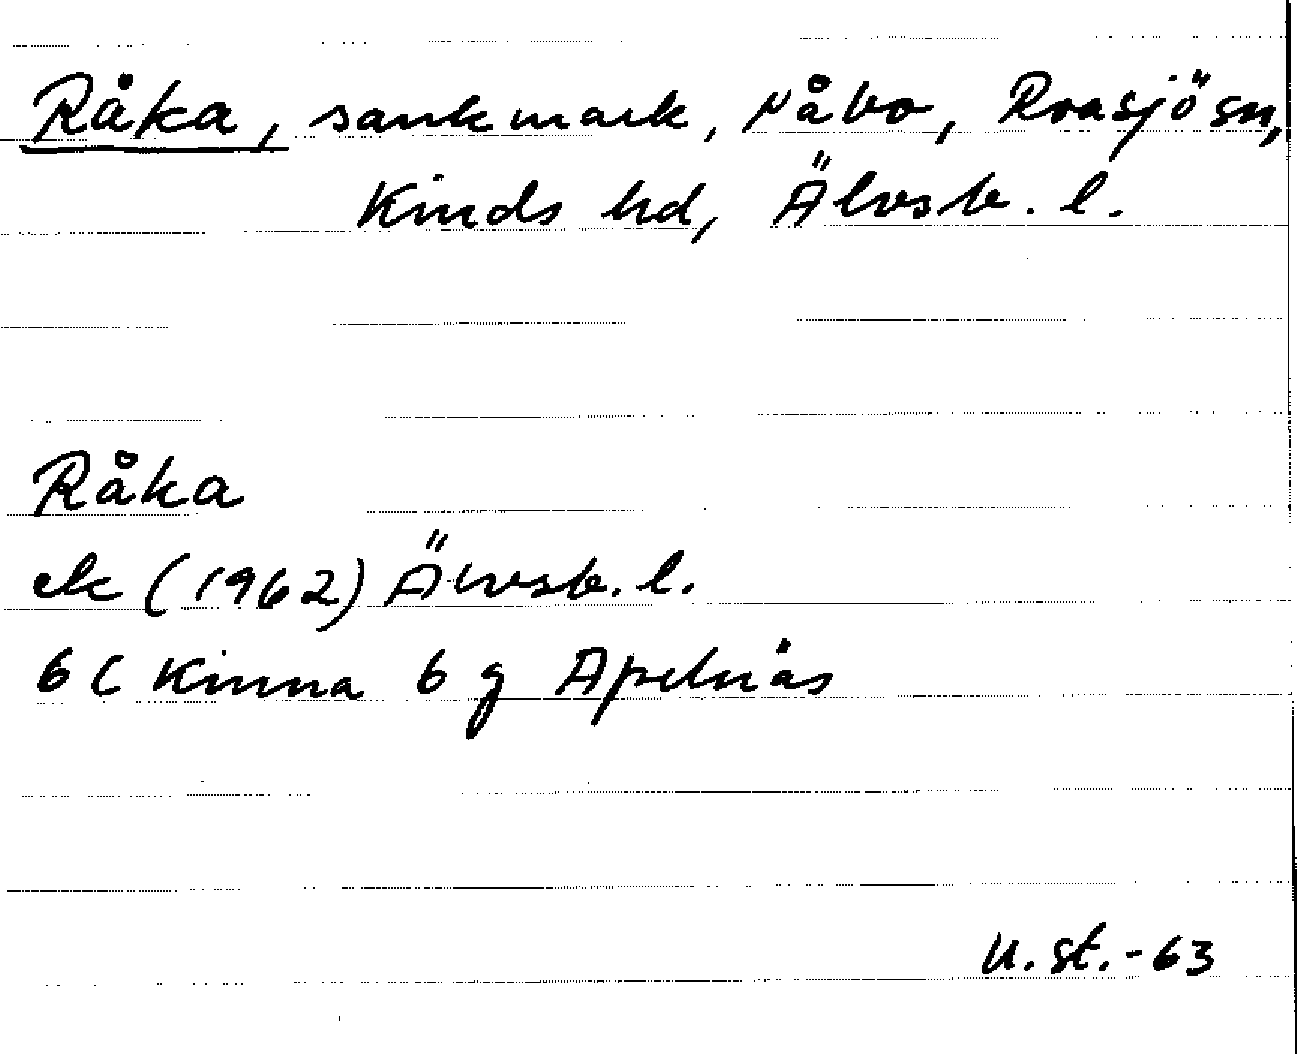 Råka, sankmark, Nåbo, Roasjö sn,
Kinds hd, Älvsb. l.
Råka
ek (1962) Älvsb. l.
6 C Kinna 6 g Apelnäs
U. st. - 63